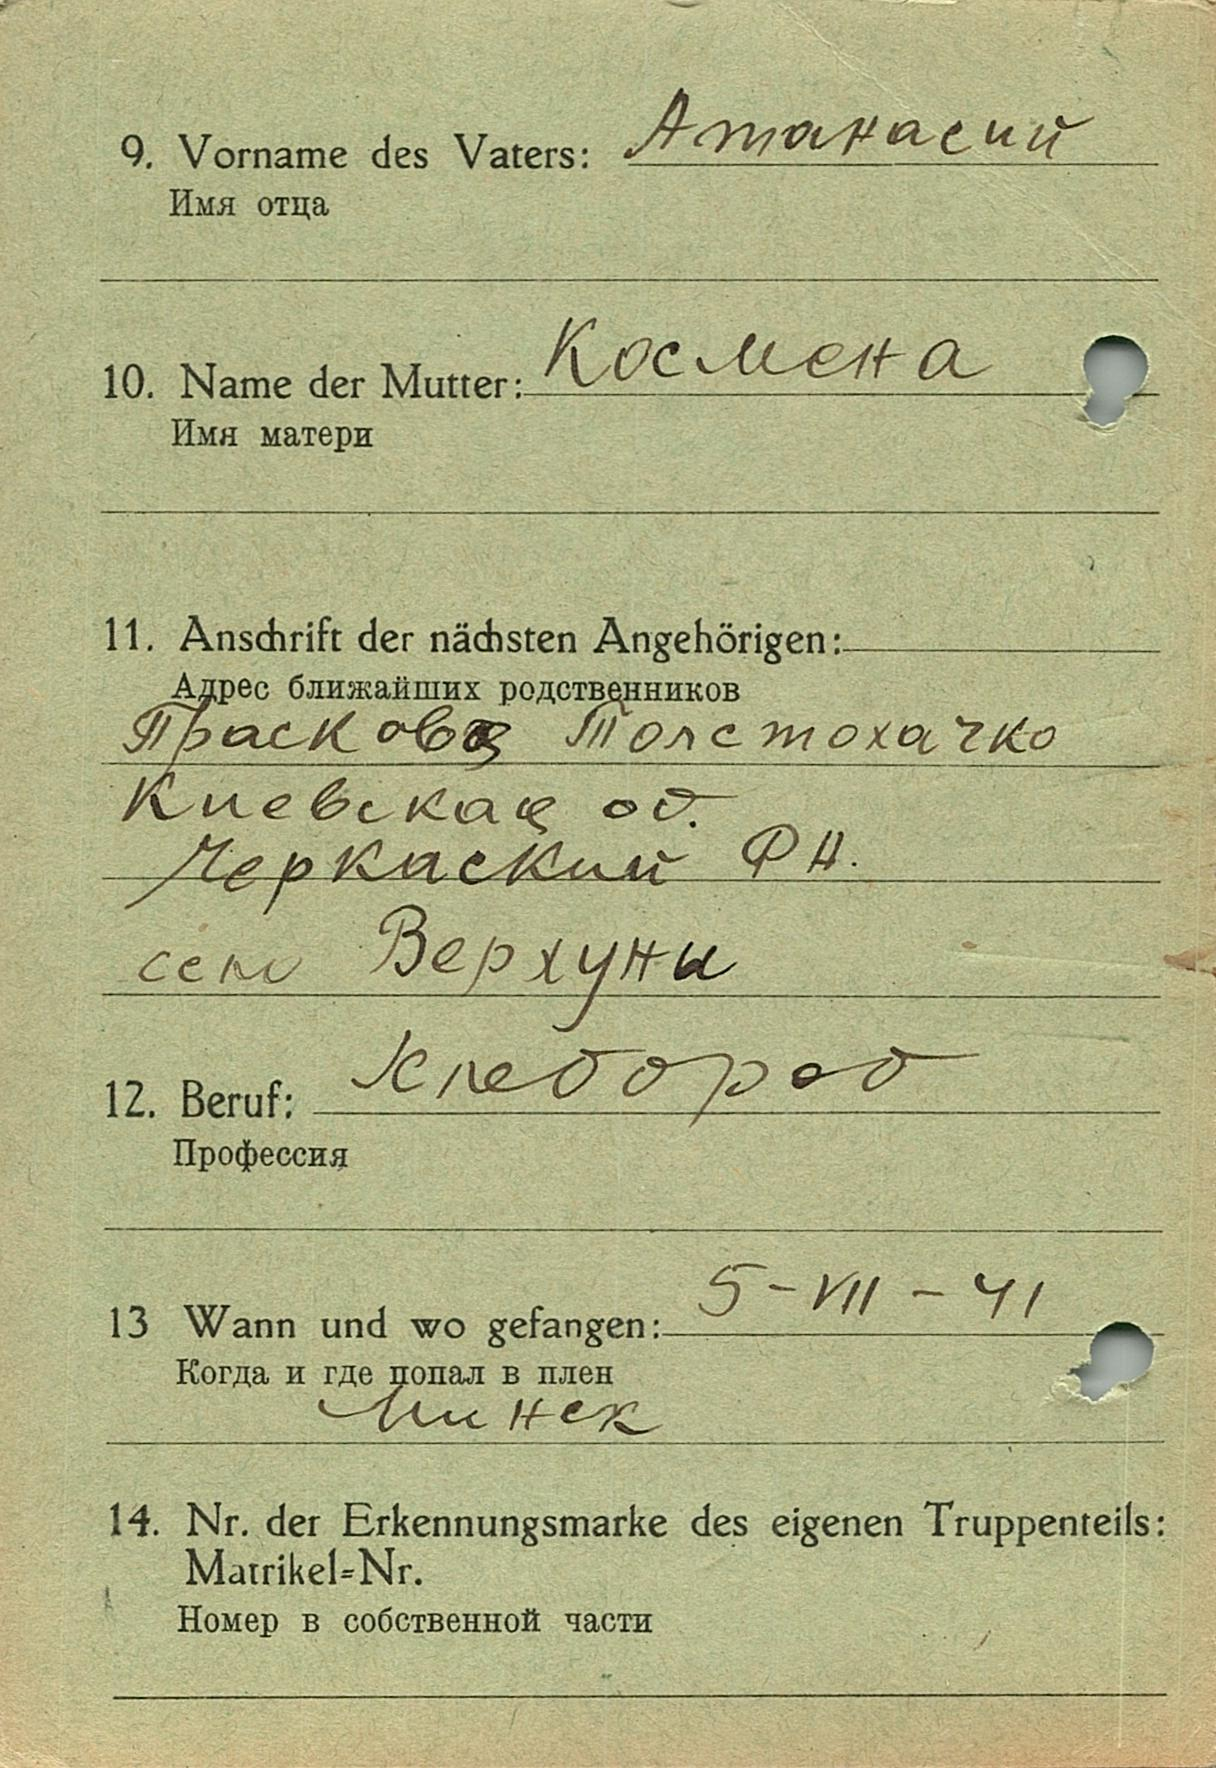 9. Vorname des Vaters: Атанасий
Имя отца
10. Name der Mutter: Космена
Имя матери
11. Anschrift der nächsten Angehörigen:
Адрес ближайших родственников
Прасковя Толстохачко
Киевская об.
Черкаский РН.
село Верхуны
12. Beruf: Хлебороб
Профессия
13 Wann und wo gefangen: 5-VII-41
Когда и где попал в плен
Минск
14. Nr. der Erkennungsmarke des eigenen Truppenteils:
Matrikel=Nr.
Номер в собственной части